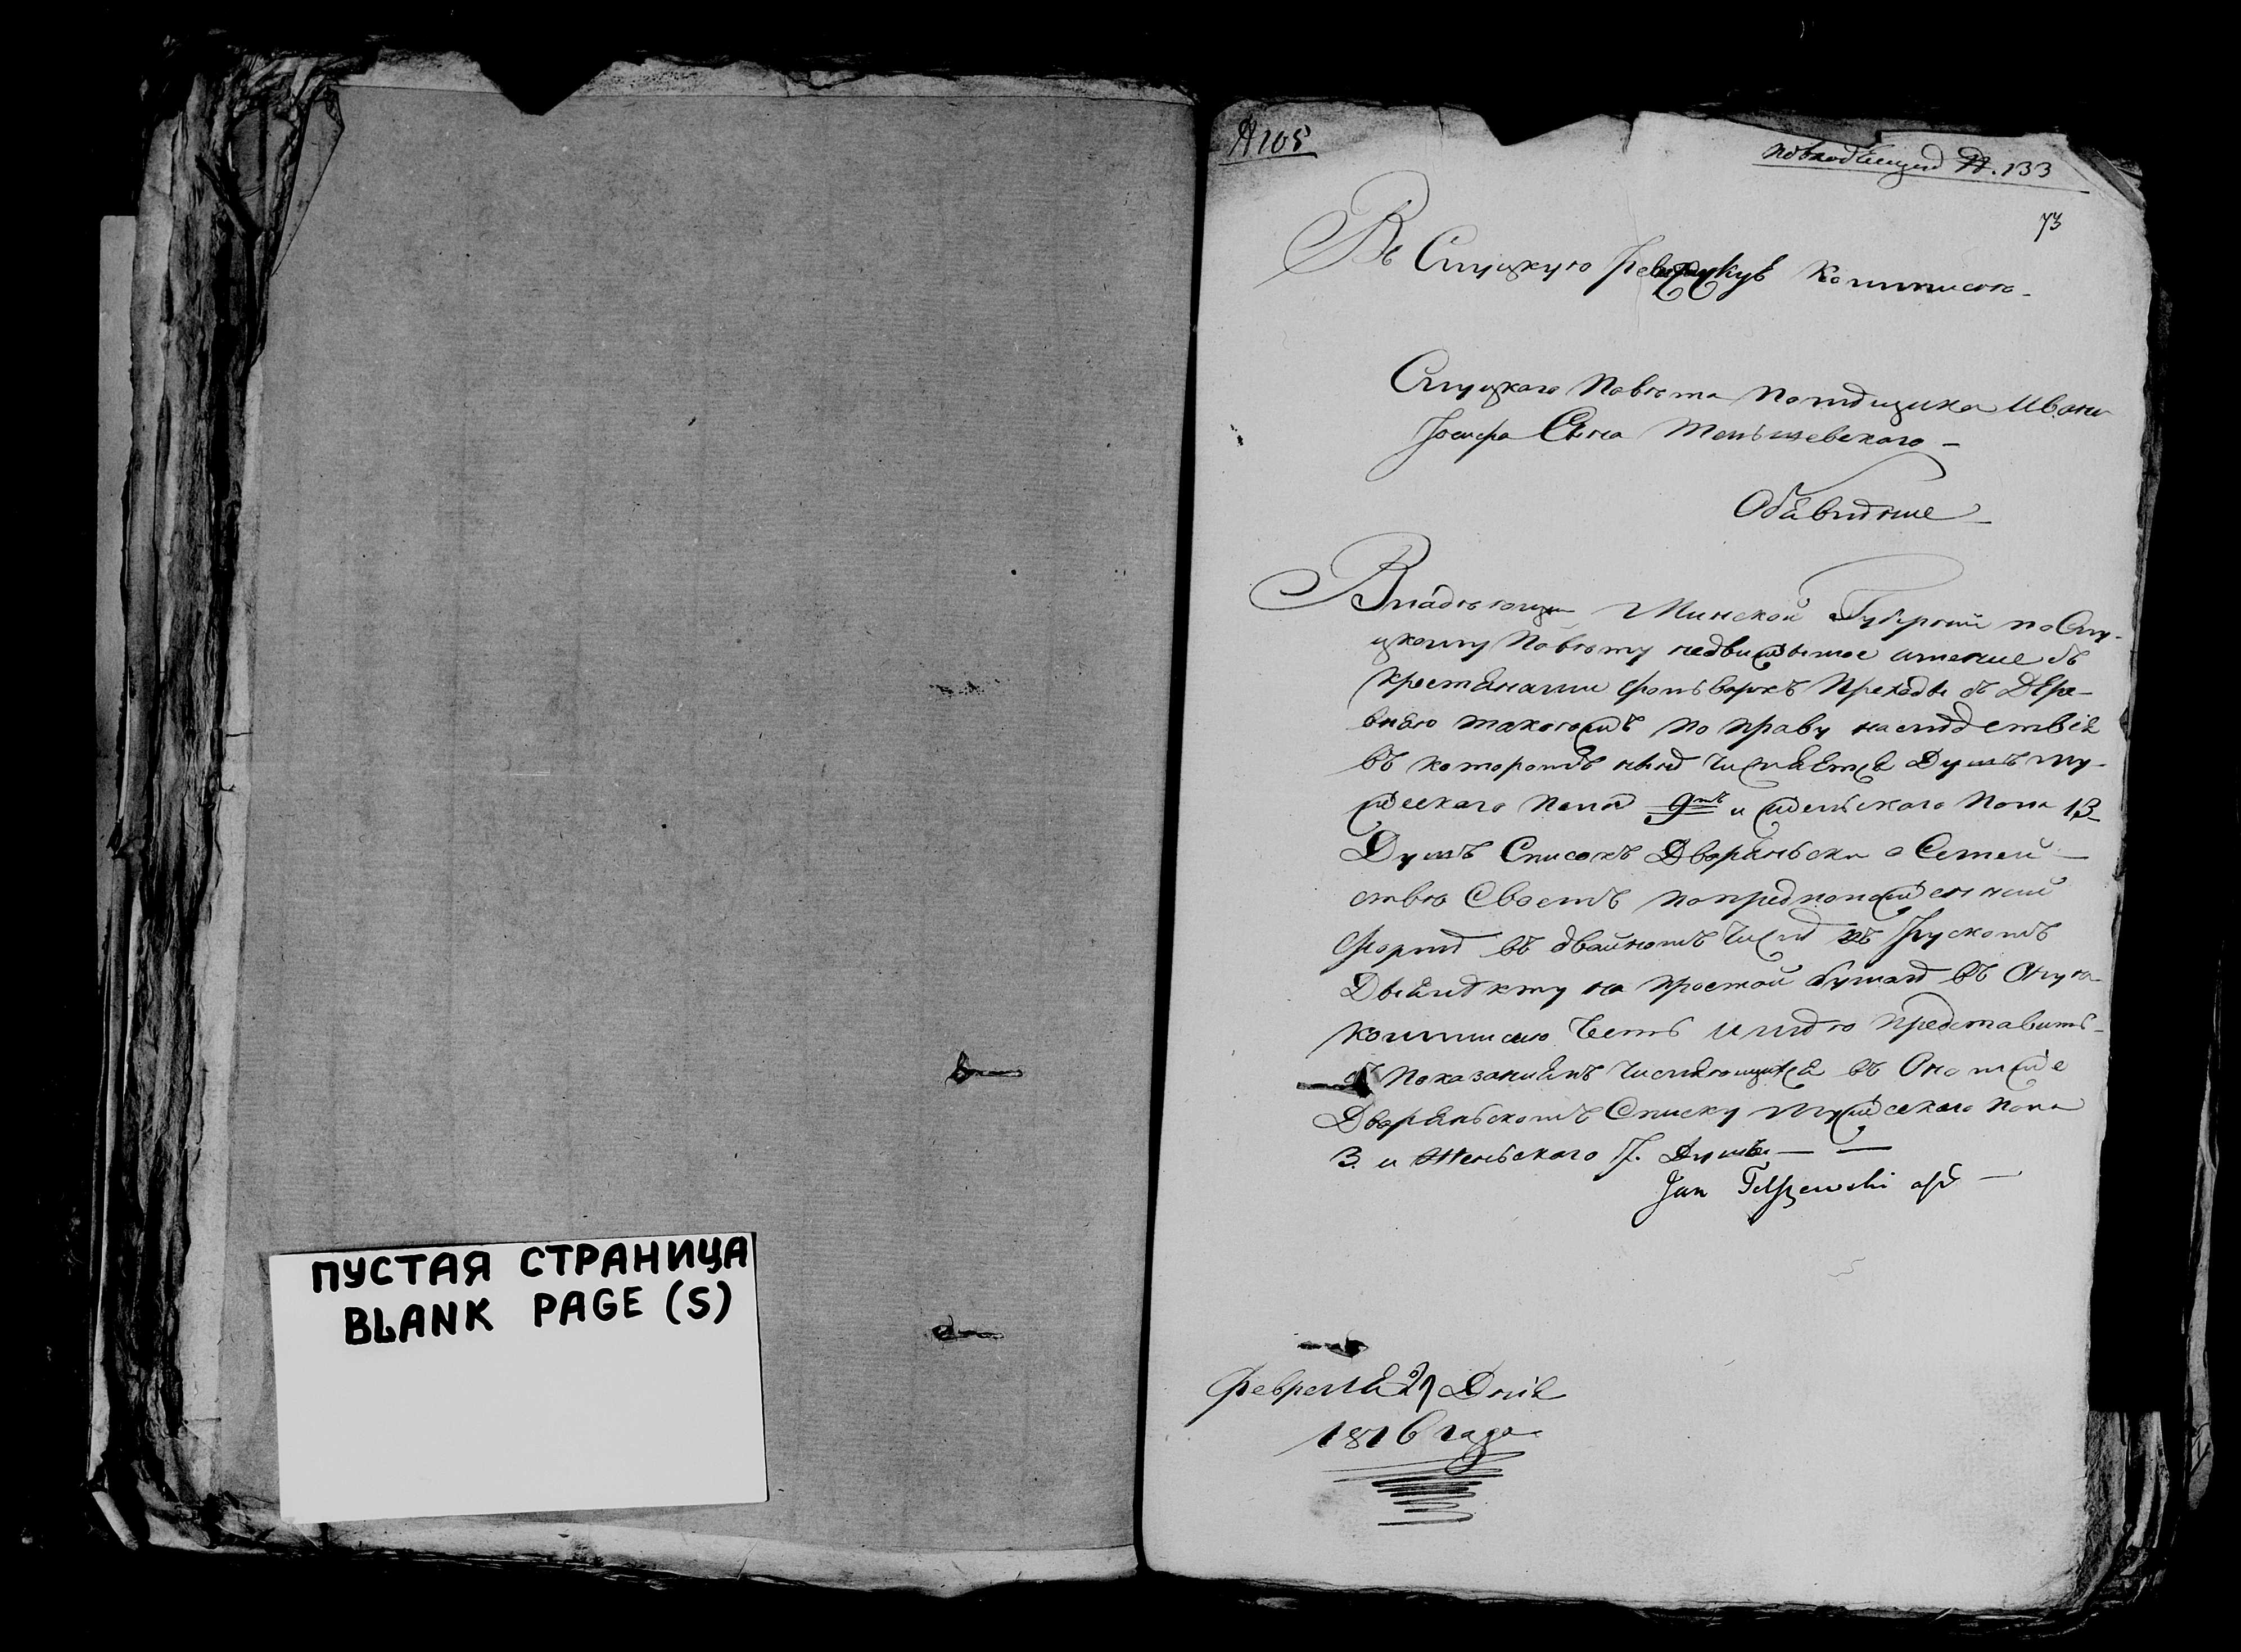 ПУСТАЯ СТРАНИЦА
BLANK PAGE (S)
№ 105
№. 133
73
Въ Слуцкую Коммисию
Слуцкаго Повѣта Помѣщика Ивана
Іосифа Сына Тельшевскаго
Обявлѣние
Владѣющи Минской Губерніи по Слу-
цкому Повѣту недвижымое имение съ
крестянами фольварокъ съ Дере-
внею такогожъ по праву наслѣдствія
въ которомъ нынѣ числяется Душъ му-
жескаго пола 9тъ и женьскаго пола 13
Душъ Списокъ Дворяньски о Семей-
ствѣ Своемъ попредположенной
Формѣ въ двайномъ числѣ на Рускомъ
на простой бумагѣ въ Ону
коммисию честь имѣю представить
съ показаниемъ числяющихся въОномже
Дворяньскомъ Списку мужескаго пола
3. и Женьскаго Душъ
Jan Telszewski
Февреля 27 Дния
1816 года